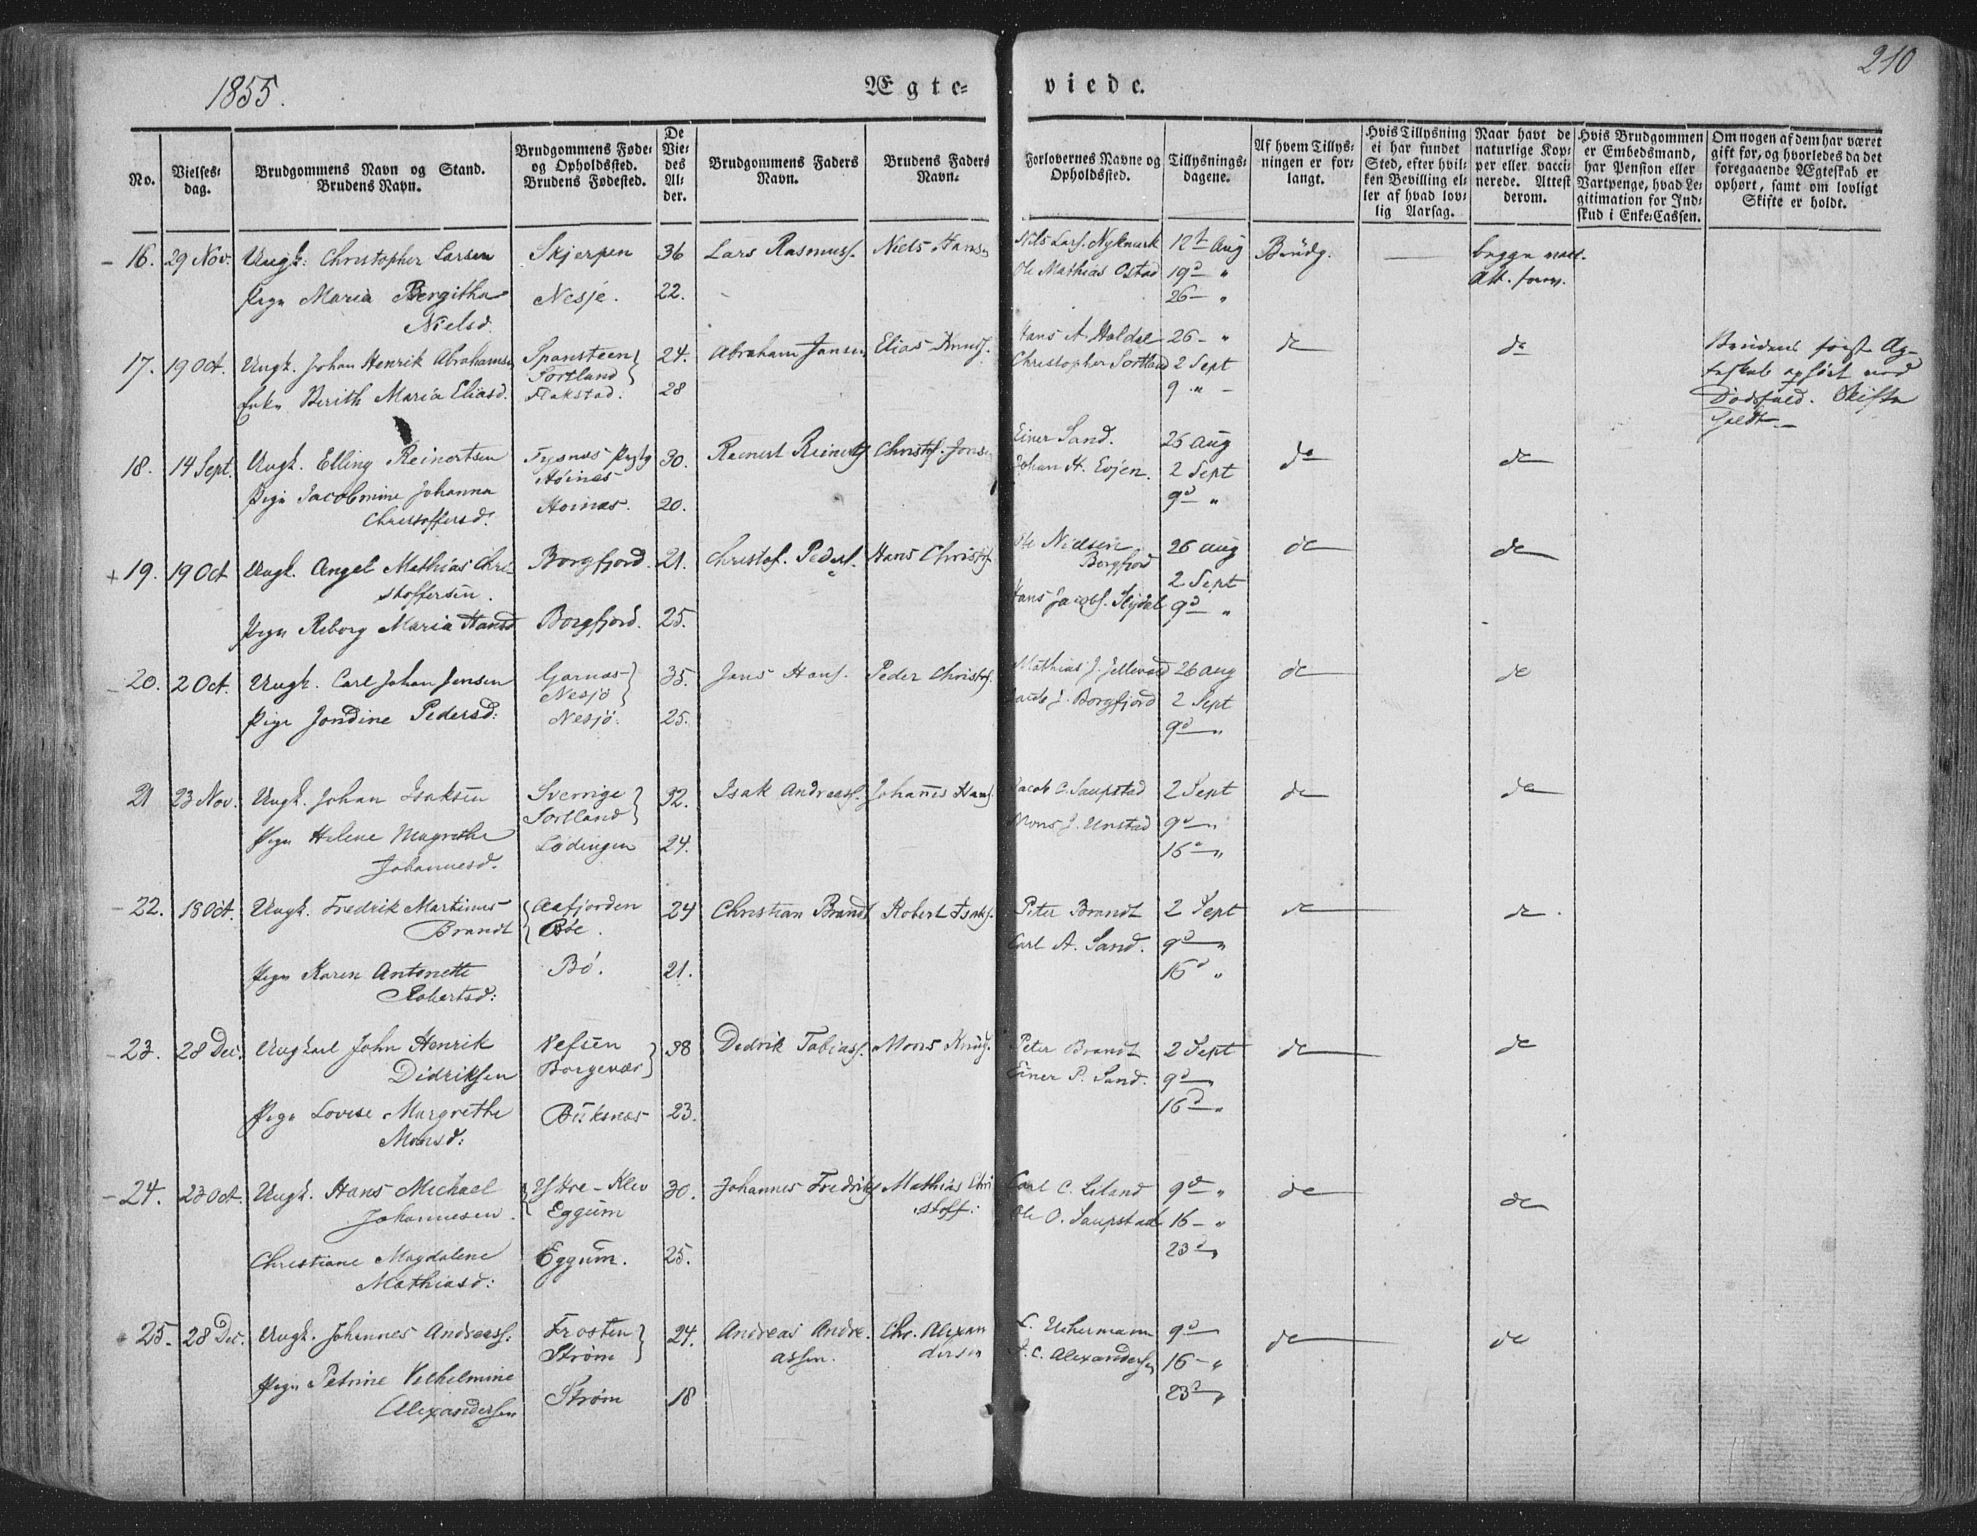 1855.
Ægte-
viede.
210
No.
Vielses-
dag.
Brudgommens Navn og Stand.
Brudens Navn.
Brudgommens Føde-
og Opholdssted.
Brudens Fødested.
De
Vie-
des
Al-
der.
Brudgommens Faders
Navn.
Brudens Faders
Navn.
Forlovernes Navne og
Opholdssted.
Tillysnings-
dagene.
Af hvem Tillys-
ningen er for-
langt.
Hvis Tillysning
ei har fundet
Sted, efter hvil-
ken Bevilling el-
ler af hvad lov-
lig Aarsag.
Naar havt de
naturlige Kop-
per eller vacci-
nerede. Attest
derom.
Hvis Brudgommen
er Embedsmand,
har Pension eller
Vartpenge, hvad Le-
gitimation for Ind-
skud i Enke-Cassen.
Om nogen af dem har været
gift før, og hvorledes da det
foregaaende Ægteskab er
ophørt, samt om lovligt
Skifte er holdt.
16. 29 Nov. Ungk: Christopher Larsen Skjerpen 36 Lars Rasmuss. Niels Hans Nils Lars. Nykmark 12te Aug Brudg. begge vacc.
Pige Maria Bergitha Nesje. 22. Ole Mathias Ostad 19de " Att. forev.
Nielsd. 26 – "
17. 19 Oct. Ungk. Johan Henrik Abrahams Spansteen 24. Abraham Jansen Elias Knuds. Hans A. Haldal 26 – " do do Brudens første Æg-
Sortland Christopher Sortland 2 Sept teskab ophørt ved
Enke Berith Maria Eliasd. Flakstad. 28 9 " – Dødsfald. Skifte
holdt.
18. 14 Sept. Ungk. Elling Reinertsen Tysnes Prgld 30. Reinert Reinerts Christof. Jons Einer Sand. 26 Aug do do
Høinæs
Pige Jacobmine Johanna Hoinæs. 20. Johan H. Evjen. 2 Sept
Christoffersd. 9d "
19. 19 Oct Ungk. Angel Mathias Chri- Borgfjord. 21. Christof. Peders. Hans Christof Ole Nielsen 26 Aug do do
stoffersen. Borgfjord 2 Sept
Hans Jacobs. 9d "
Pige Reborg Maria Hansd Borgfjord. 25.
20. 2 Oct. Ungk. Carl Johan Jensen Garnæs 35. Jens Hans. Peder Christof. Mathias J. 26 Aug do do
Nesjø
Pige Jondine Pedersd: Nesjø. 25. Jacob J. Borgfjord 2 Sept
9d "
21 23 Nov. Ungk. Johan Isaksen Sverrige 32. Isak Andreass. Johannes Hans Jacob C. Saupstad 2 Sept do do
Sortland
Pige Helene Magrethe Lødingen 24. Mons J. Unstad 9d "
Johannesd. 16d "
22. 18 Oct. Ungk. Fredrik Martinus Aafjorden 24 Christian Brandt Robert Isaks. Peter Brandt 2 Sept do do.
Brandt Bøe. Carl A. Sand. 9d "
Pige Karen Antonette Bø. 21. 16d "
Robertsd:
23. 28 Dec. Ungkarl John Henrik Vefsen 38 Dedrik Tobiass. Mons Knuds. Peter Brandt 2 Sept do do
Didriksen Borgevær Einer P. Sand. 9d "
Pige Lovise Margrethe Buksnæs 23. 16d "
Monsd:
24. 23 Oct. Ungk. Hans Michael Ystre-Klev 30. Johannes Fredriks Mathias Chri Carl C. Leland 9d " do do
Johannesen. Eggum stoff: Ole O. Saupstad 16 – "
Christiane Magdalene Eggum. 25. 23d "
Mathiasd:
25. 28 Dec. Ungk. Johannes Andreass. Frosten 24. Andreas Andre- Chr. Alexan C. Uchermann 9d do do
Strøm assen. dersen C. Alexandersen 16 – "
Pige Petrine Velhelmine Strøm 18 23d "
Alexandersen